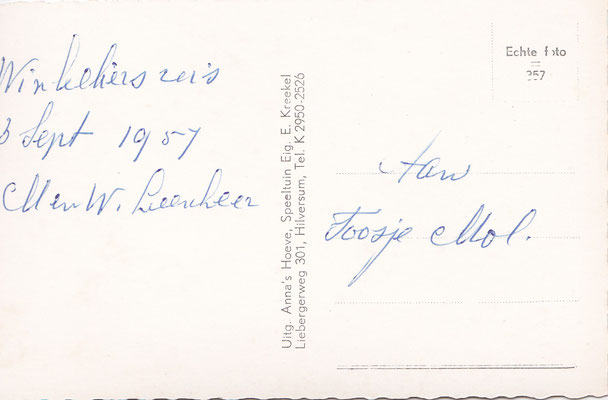 Winkeliers reis
3 Sept 1957
M en W. Leenheer
Uitg. Anna's Hoeve, Speeltuin Eig. E. Kreekel
Liebergerweg 301, Hilversum, Tel. K 2950-2526
Echte foto
357
Aan
Toosje Mol.